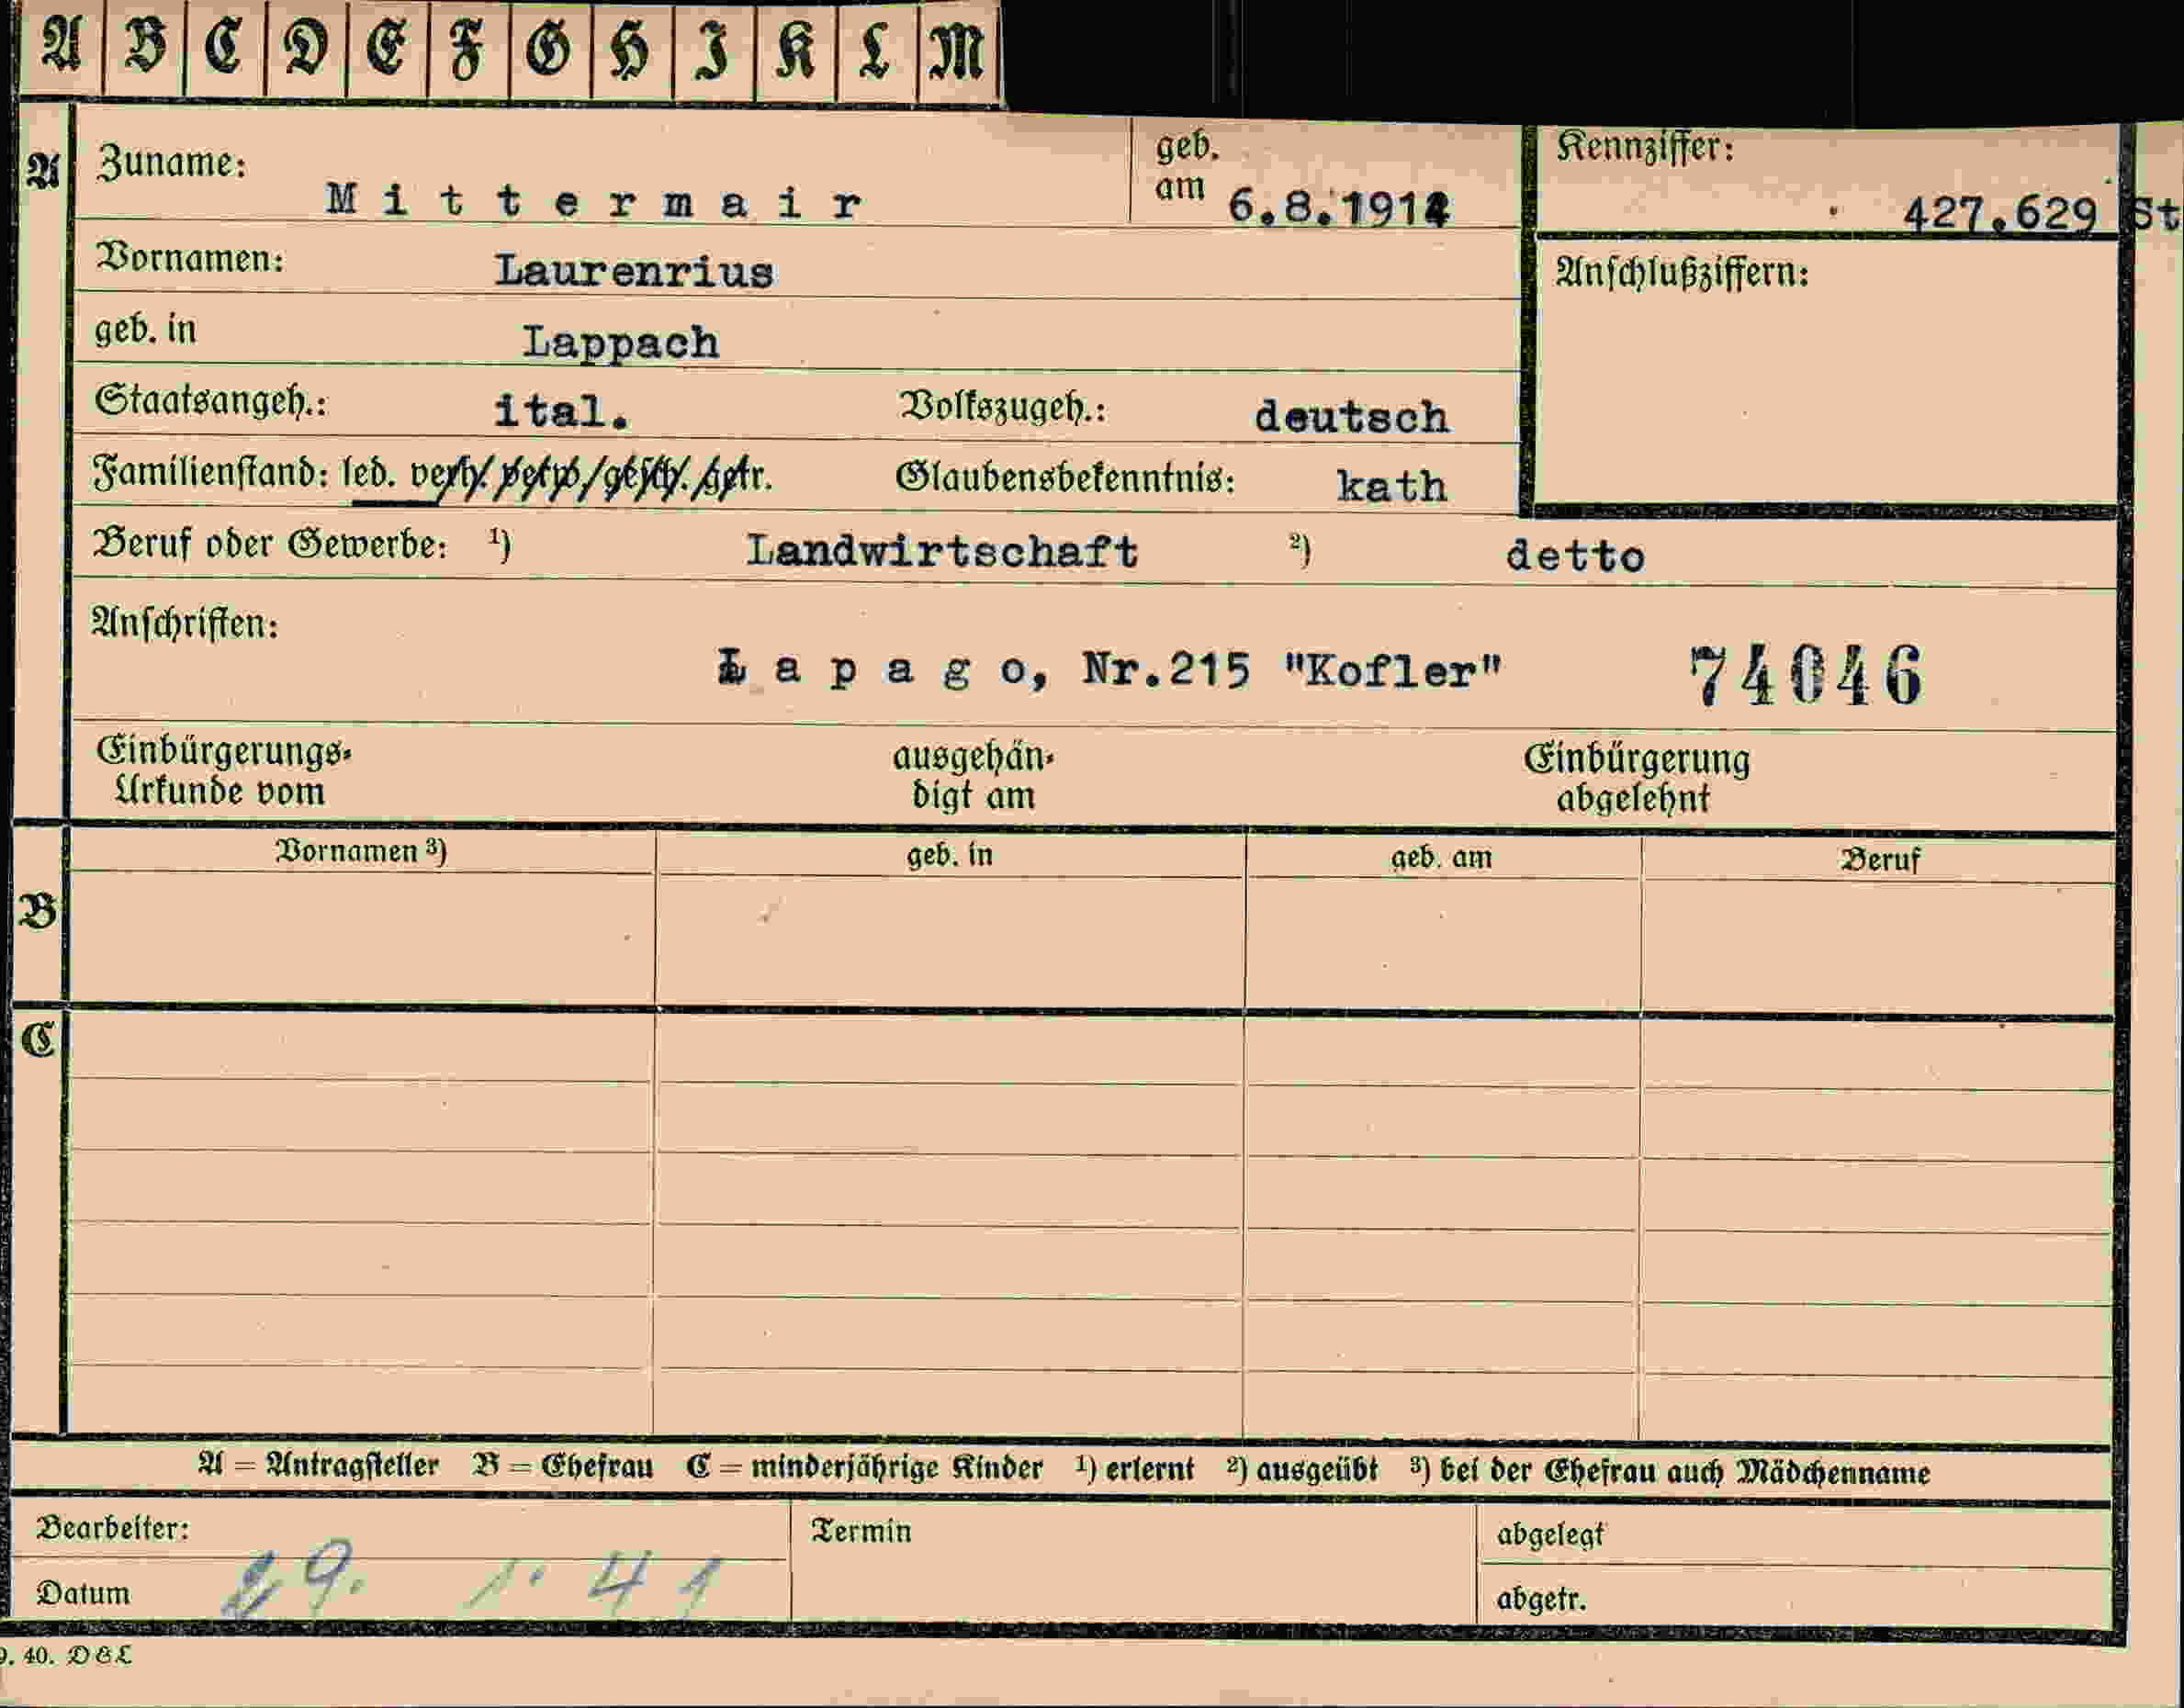 A B C D E F G H I K L M
A Zuname: Mittermair geb. am 6.8.1914 Kennziffer: 427.629 St
Vornamen: Laurenrius Anschlußziffern:
geb. in Lappach
Staatsangeh.: ital. Volkszugeh.: deutsch
Familienstand: led. verh. verw. gesch. getr. Glaubensbekenntnis: kath
Beruf oder Gewerbe: ¹) Landwirtschaft ²) detto
Anschriften:
Lapago, Nr.215 "Kofler" 74046
Einbürgerungs- ausgehän- Einbürgerung
Urkunde vom digt am abgelehnt
Vornamen ³) geb. in geb. am Beruf
B
C
A = Antragsteller B = Ehefrau C = minderjährige Kinder ¹) erlernt ²) ausgeübt ³) bei der Ehefrau auch Mädchenname
Bearbeiter: Termin abgelegt
Datum 29. 1. 41 abgetr.
9. 40. D&L